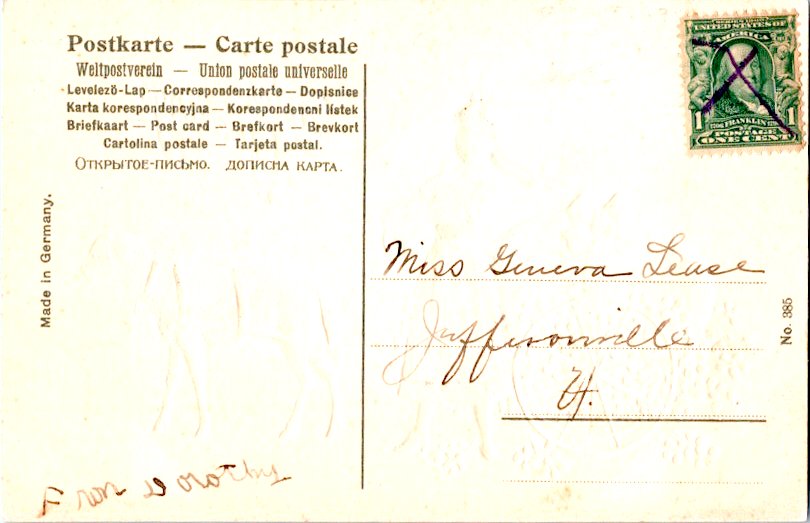 Postkarte — Carte postale
Weltpostverein — Union postale universelle
Levelező-Lap — Correspondenzkarte — Dopisnice
Karta korespondencyjna — Korespondencni lístek
Briefkaart — Post card — Brefkort — Brevkort
Cartolina postale — Tarjeta postal.
Открытое-письмо. Дописна карта.
Made in Germany.
SERIES 1902
UNITED STATES OF
AMERICA
1 FRANKLIN 1
POSTAGE
ONE CENT
Miss Geneva Lease
Jeffersonville
No. 385
From Dorothy